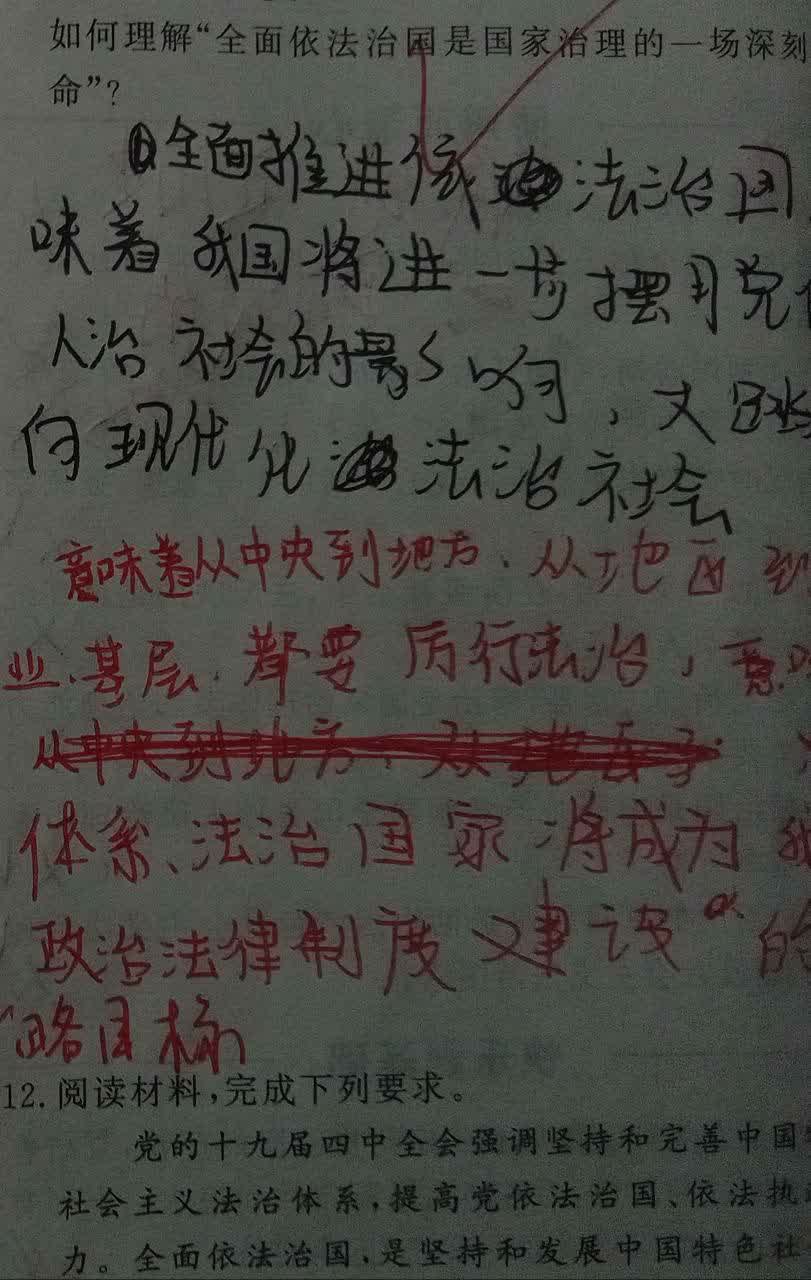 如何理解“全面依法治国是国家治理的一场深刻
命”?
①全面推进依法治国
味着我国将进一步摆用党
人治社会的影响,大
向现代化法治社会
意味着从中央到地方、从地区到
业、基层、都要厉行法治,意味
从中央到地方、从地
体系、法治国家将成为我
政治法律制度建设的
略目标
12. 阅读材料,完成下列要求。
党的十九届四中全会强调坚持和完善中国
社会主义法治体系,提高党依法治国、依法执
力。全面依法治国,是坚持和发展中国特色社